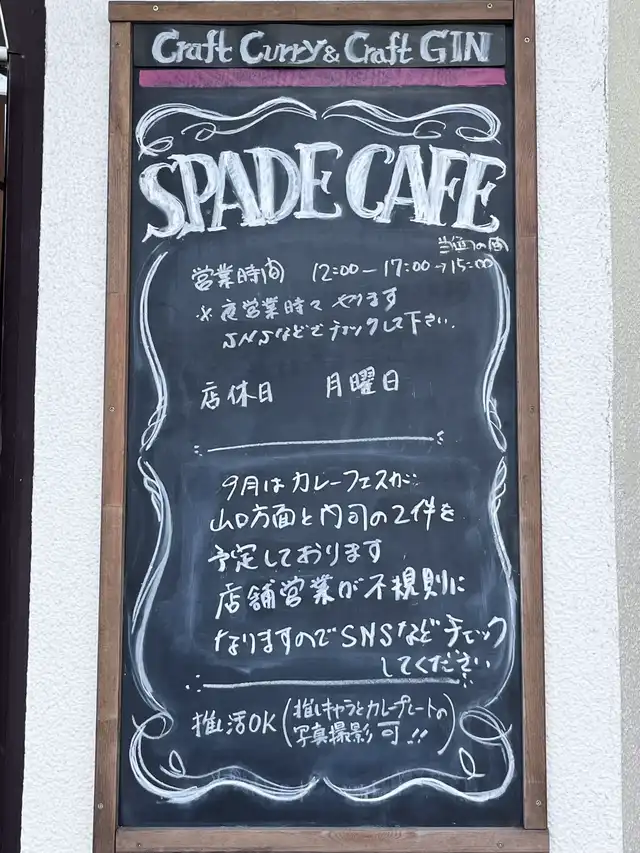 Craft Curry & Craft GIN
SPADE CAFE
当面の間
営業時間 12:00-17:00→15:00
※夜営業時々やります
SNSなどでチェックして下さい。
店休日 月曜日
9月はカレーフェスが
山口方面と門司の2件を
予定しております
店舗営業が不規則に
なりますのでSNSなどチェック
してください
推活OK(推しキャラとカレープレートの
写真撮影 可!!)